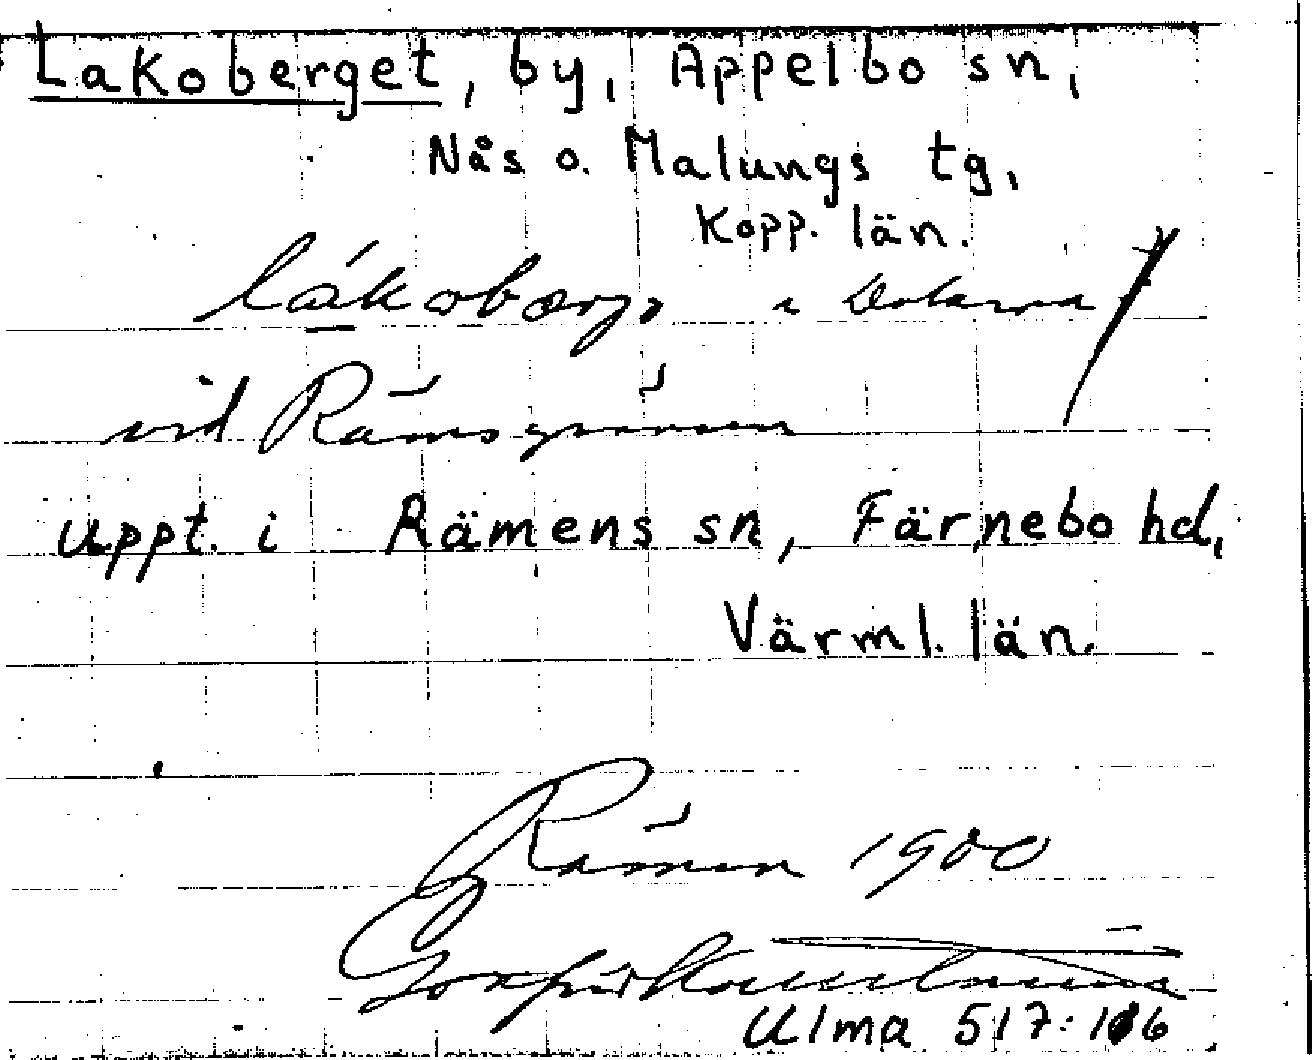 Lakoberget, by, Äppelbo sn,
Nås o. Malungs tg,
Kopp. län.
i Dalarna
vid Rämsgränsen
uppt. i Rämens sn, Färnebo hd,
Värml. län.
Rämen 1900
Ulma 517:116